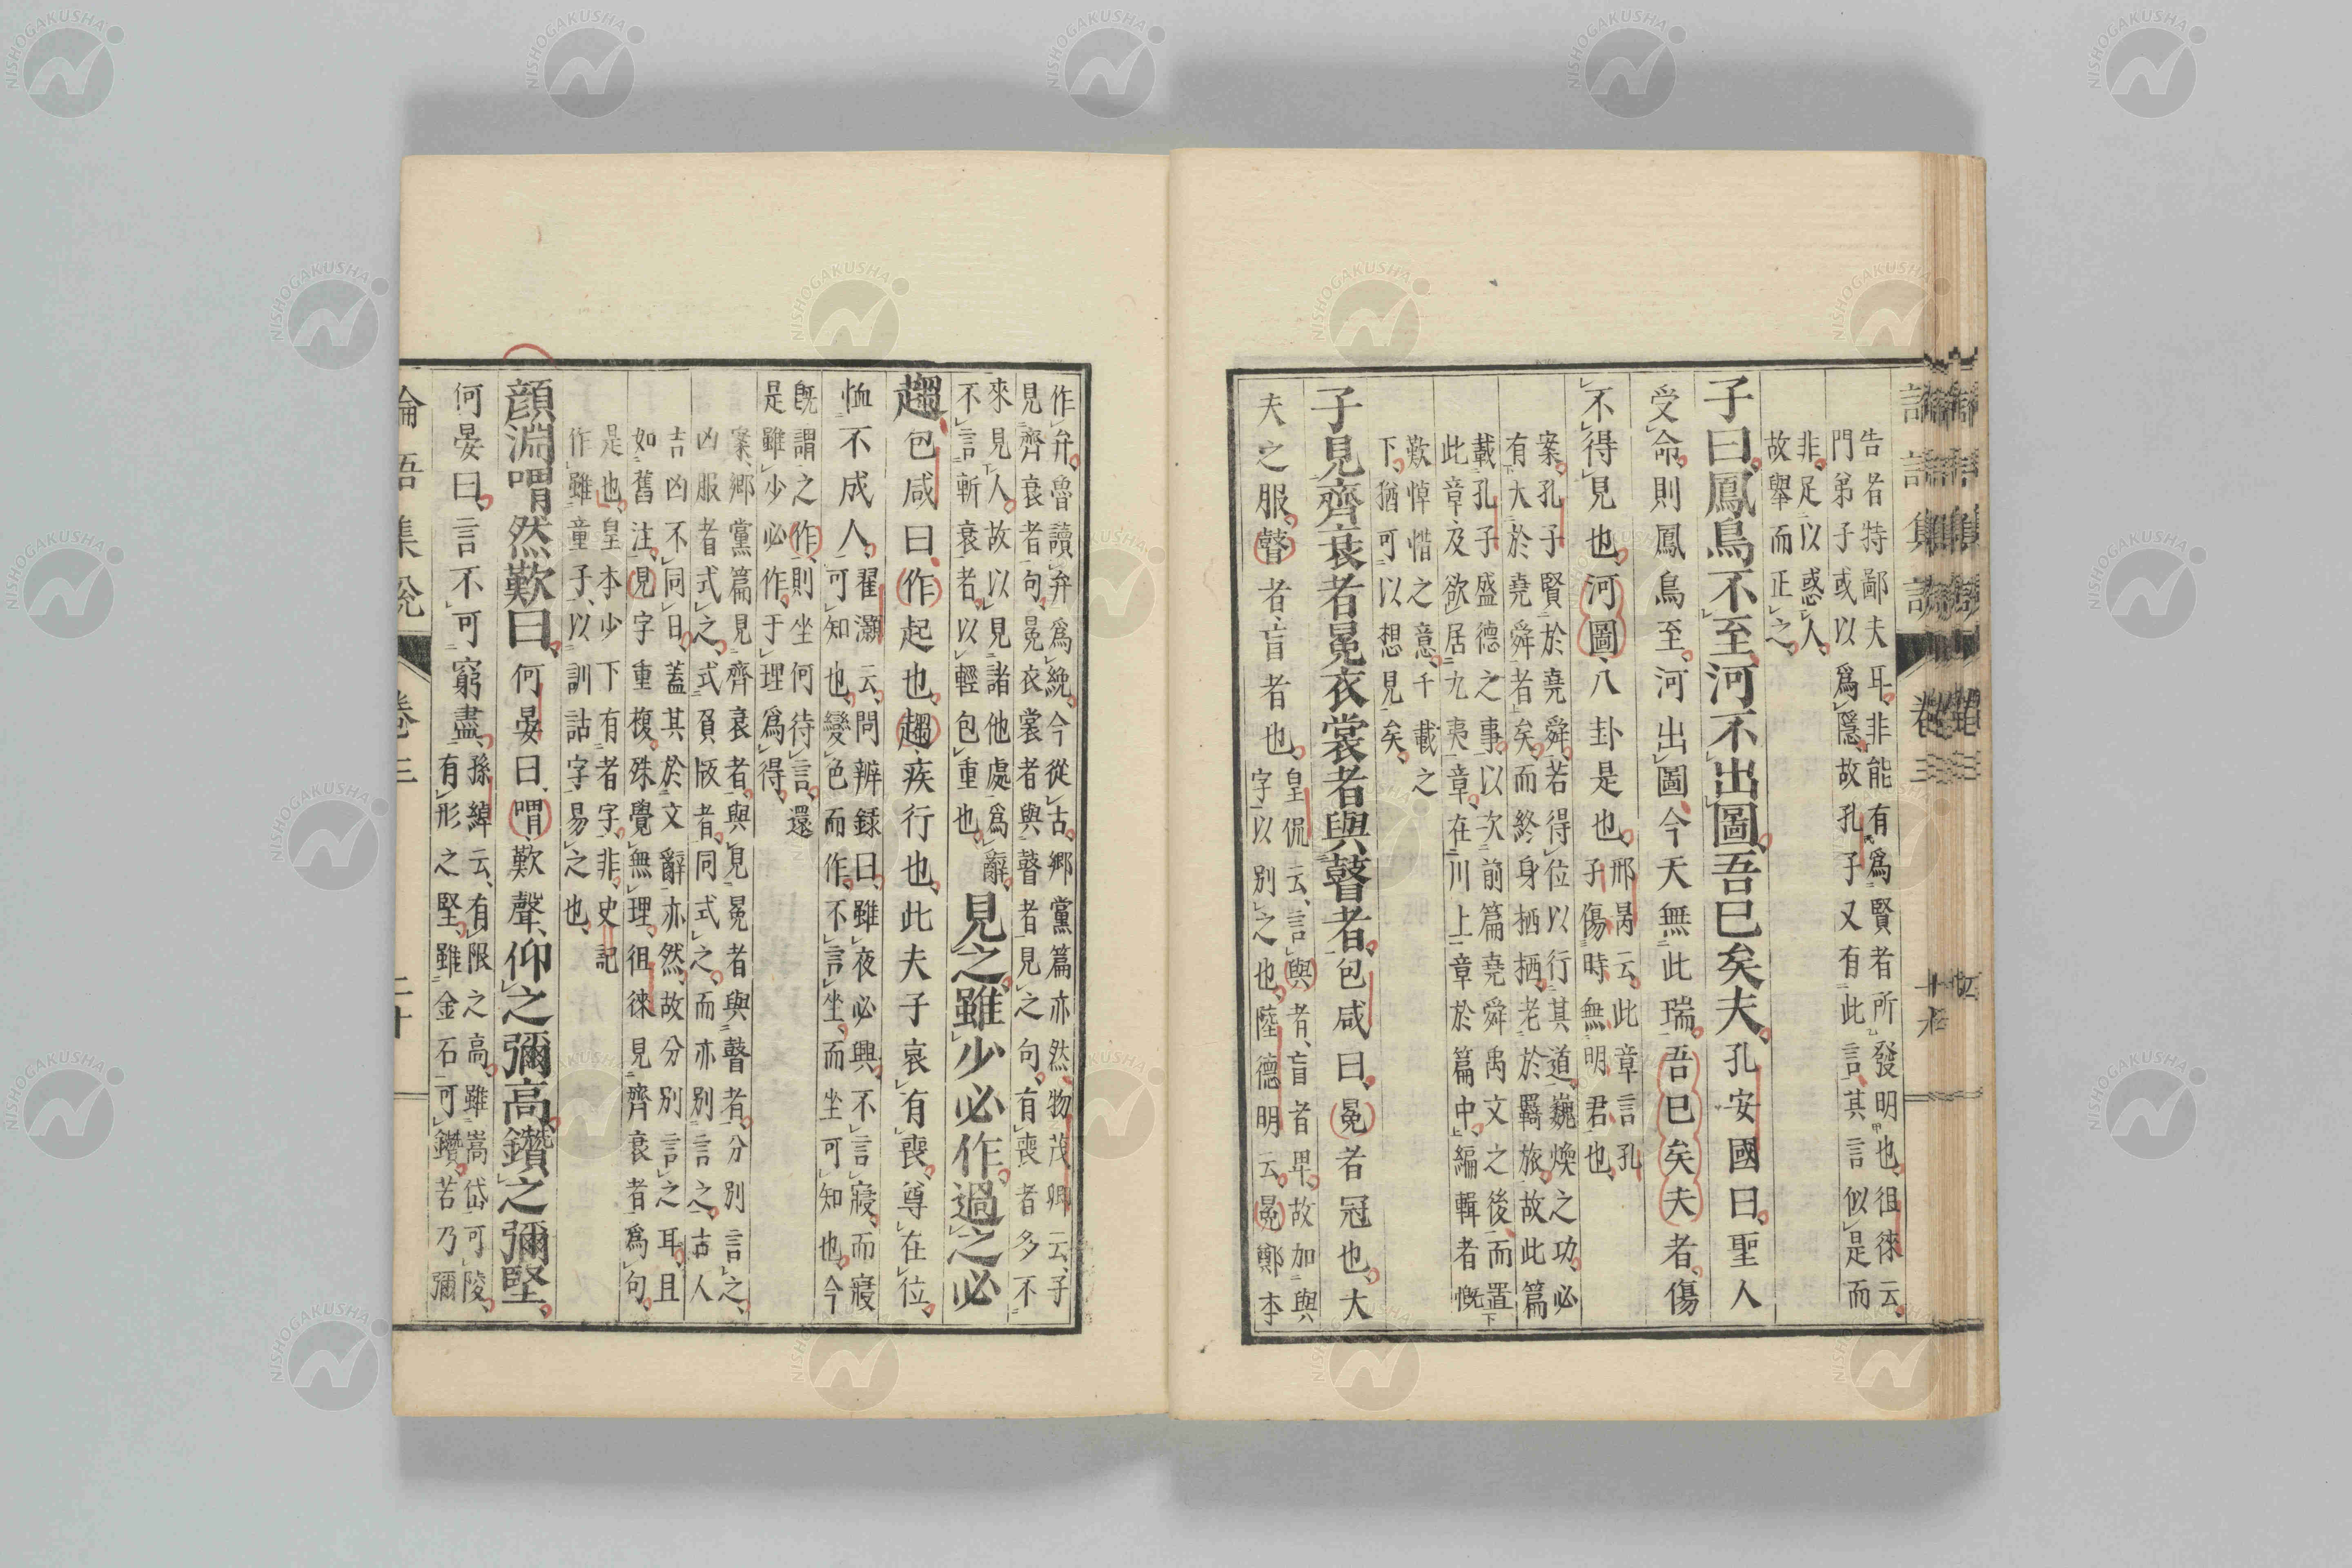 告者特鄙夫耳非能有爲賢者所發明也徂徠云
門弟子或以爲隱故孔子又有此言其言似是而
非足以惑人
故舉而正之
子曰鳳鳥不至河不出圖吾已矣夫孔安國曰聖人
受命則鳳鳥至河出圖今天無此瑞吾已矣夫者傷
不得見也河圖八卦是也
邢昺云此章言孔
子傷時無明君也
案孔子賢於堯舜若得位以行其道巍煥之功必
有大於堯舜者矣而終身栖栖老於羇旅故此篇
載孔子盛德之事以次前篇堯舜禹文之後而置
此章及欲居九夷章在川上章於篇中編輯者慨
歎悼惜之意千載之
下猶可以想見矣
子見齊衰者冕衣裳者與瞽者包咸曰冕者冠也大
夫之服瞽者盲者也
皇侃云言與者盲者卑故加與
字以別之也陸德明云冕鄭本
作弁魯讀弁爲絻今從古鄉黨篇亦然物茂卿云子
見齊衰者句冕衣裳者與瞽者見之句有喪者多不
來見人故以見諸他處爲辭
不言斬衰者以輕包重也
見之雖少必作過之必
趨包咸曰作起也趨疾行也此夫子哀有喪尊在位
恤不成人
翟灝云問辨録曰雖夜必興不言寢而寢
可知也變色而作不言坐而坐可知也今
既謂之作則坐何待言還
是雖少必作于理爲得
案鄉黨篇見齊衰者與見冕者與瞽者分別言之
凶服者式之式負版者同式之而亦別言之古人
吉凶不同日蓋其於文辭亦然故分別言之耳且
如舊注見字重複殊覺無理徂徠見齊衰者爲句
是也皇本少下有者字非史記
作雖童子以訓詁字易之也
顏淵喟然歎曰何晏曰喟歎聲仰之彌高鑽之彌堅
何晏曰言不可窮盡
孫綽云有限之高雖嵩岱可陵
有形之堅雖金石可鑽若乃彌
論語集說 卷三 二十
NISHOGAKUSHA